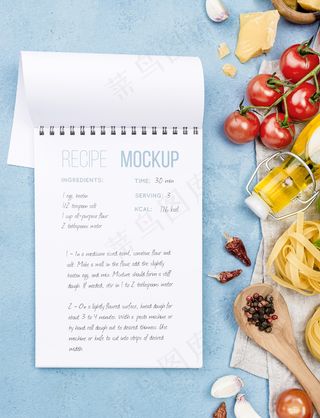 RECIPE MOCKUP
INGREDIENTS:
1 egg, beaten
1/2 teaspoon salt
1 cup all-purpose flour
2 tablespoons water
TIME: 30 min
SERVING: 3
KCAL: 716 kcal
1 - In a medium sized bowl, combine flour and
salt. Make a well in the flour, add the slightly
beaten egg, and mix. Mixture should form a stiff
dough. If needed, stir in 1 to 2 tablespoons water.
2 - On a lightly floured surface, knead dough for
about 3 to 4 minutes. With a pasta machine or
by hand roll dough out to desired thinness. Use
machine or knife to cut into strips of desired
width.